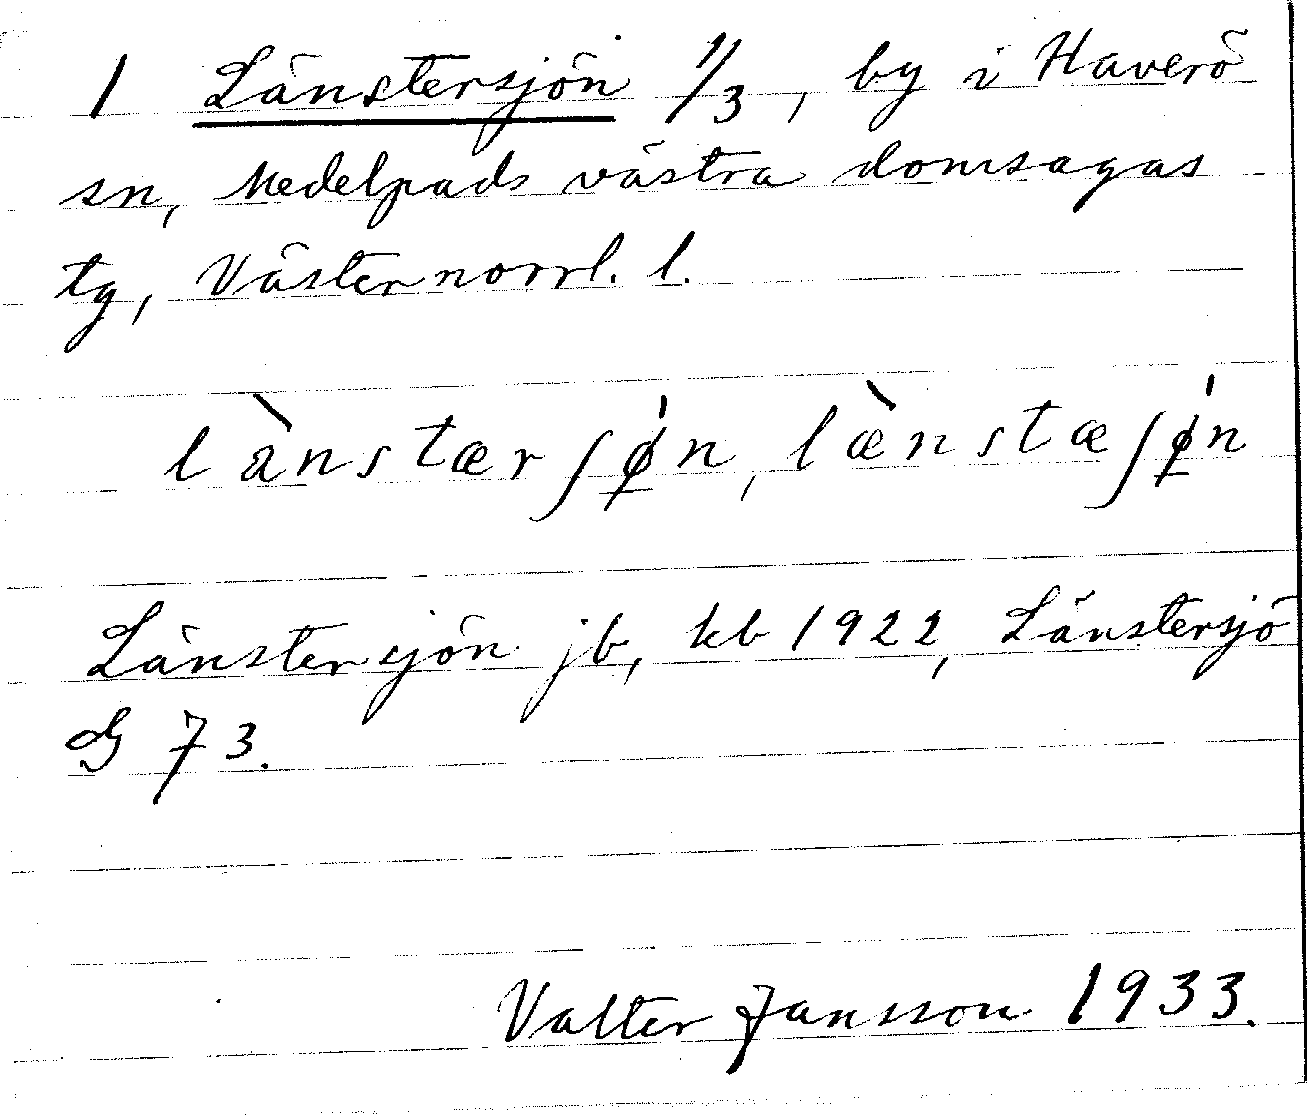 1 Länstersjön 1/3, by i Haverö
sn, Medelpads västra domsagas
tg, Västernorrl. l.
lànstærʃø̍n, læ̀nstæʃø̍n
Länstersjön jb, kb 1922, Länstersjö
G 73.
Valter Jansson 1933.